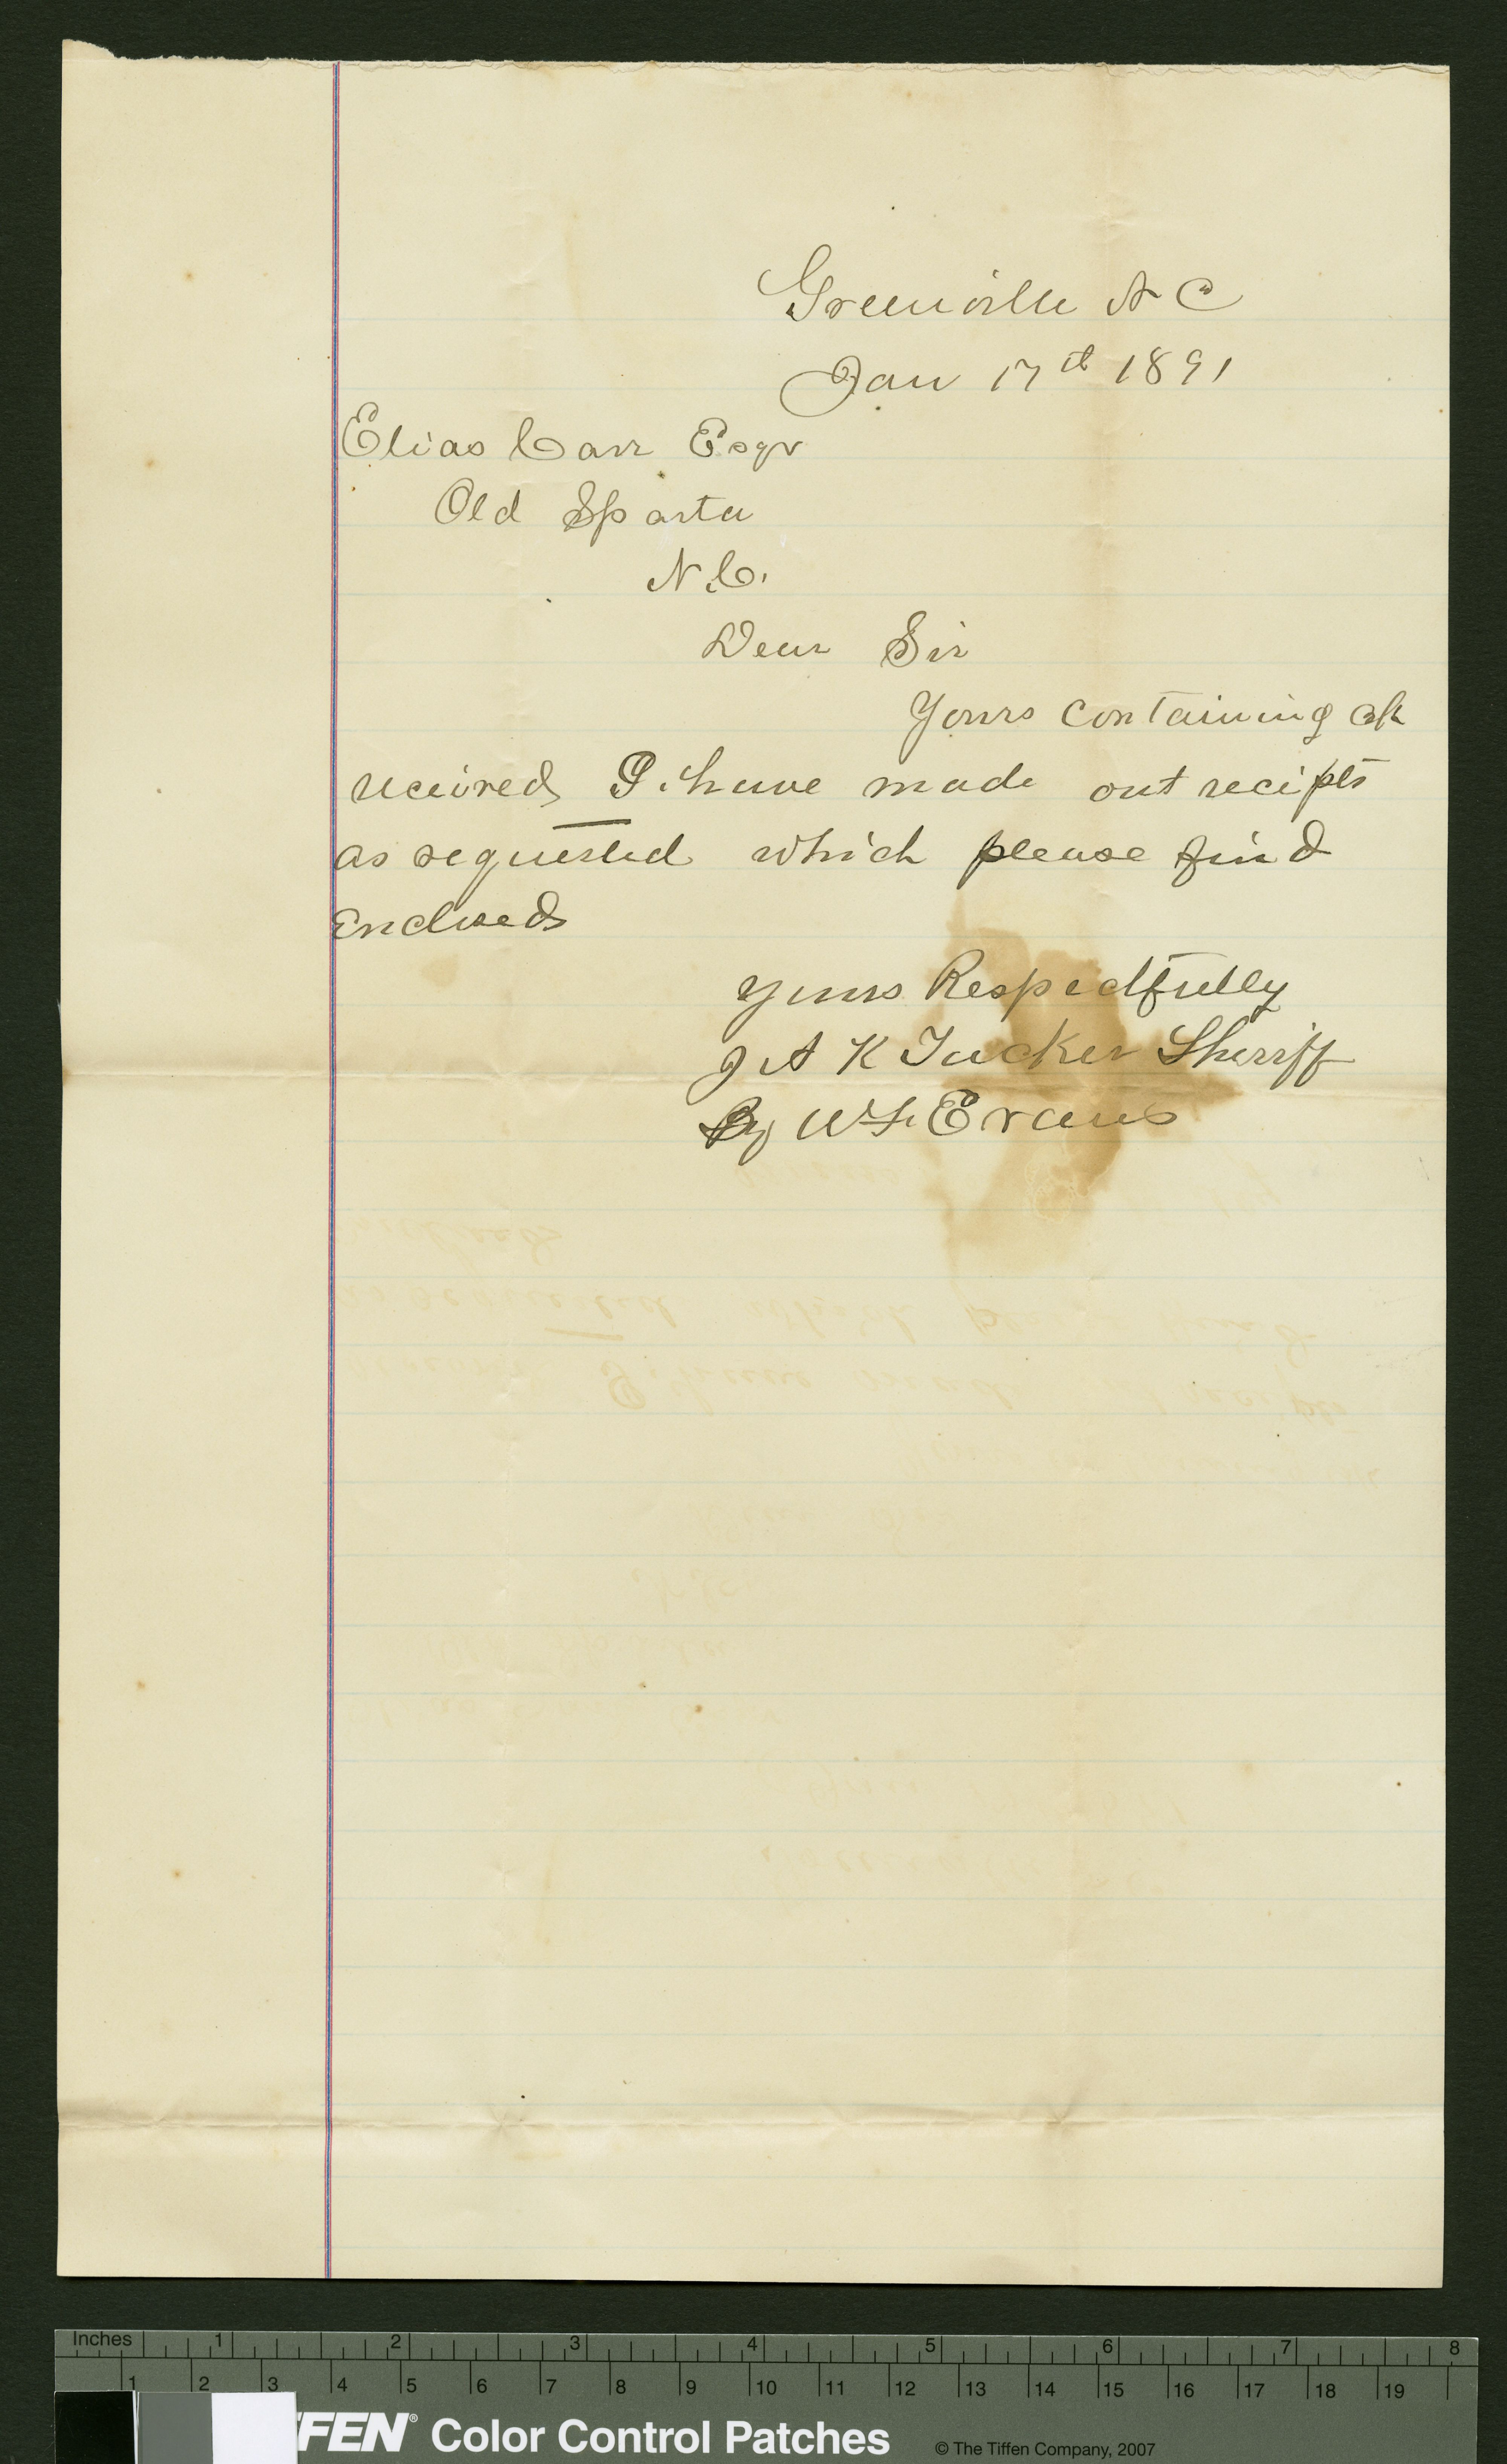 Greenville N C
Jan 17th 1891
Elias Carr Esqr
Old Sparta
N.C.
Dear Sir
Yours containing ck
received I have made out recipts
as requested which please find
Enclosed
Yours Respectfully
J A K Tucker Sheriff
By W L Evans
Inches 1 2 3 4 5 6 7 8
1 2 3 4 5 6 7 8 9 10 11 12 13 14 15 16 17 18 19
FFEN® Color Control Patches © The Tiffen Company, 2007